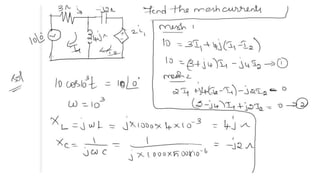 find the mesh currents
3Ω i₁ -j2Ω
10∠0 4jΩ 2i₁
I₁ I₂
mesh 1
10 = 3I₁ + 4j(I₁-I₂)
10 = (3+j4)I₁ - j4I₂ → ①
mesh 2
2I₁ + j4(I₂-I₁) - j2I₂ = 0
(2-j4)I₁ + j2I₂ = 0 → ②
sol
10 cos10³t = 10∠0°
ω = 10³
X_L = jωL = j×1000×4×10⁻³ = 4j Ω
X_C = 1/jωC = 1/j×1000×500×10⁻⁶ = -j2 Ω